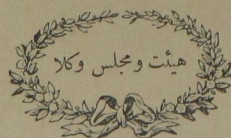 هیئت و مجلس وکلا